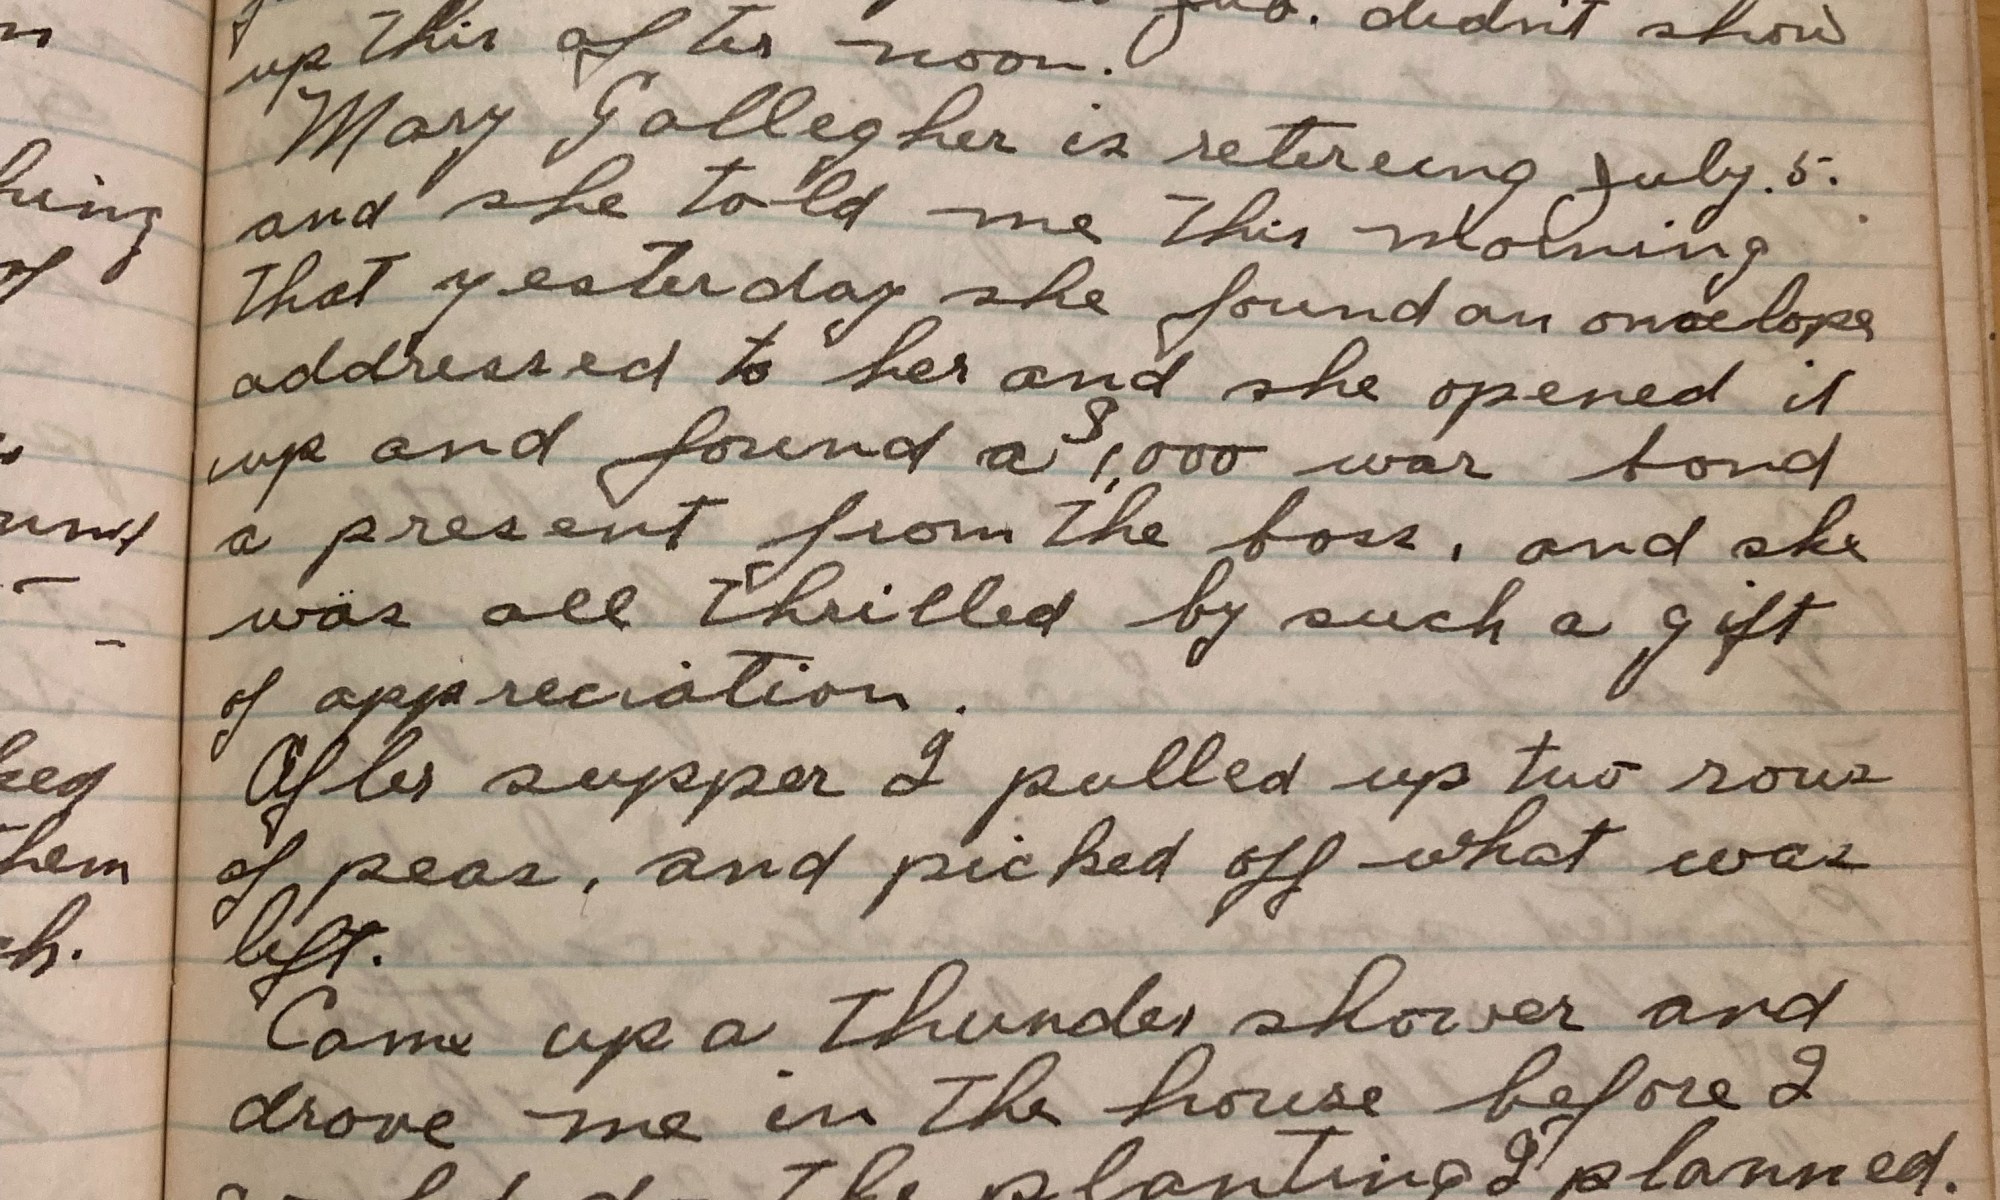 didn't show
up this after noon.
Mary Gallegher is retereing July. 5.
and she told me this morning
that yesterday she found an onvelope
addressed to her and she opened it
up and found a $1,000 war bond
a present from the boss, and she
was all thrilled by such a gift
of appreciation.
After supper I pulled up two rows
of peas, and picked off what was
left.
Came up a thunder shower and
drove me in the house before I
the planting I planned.